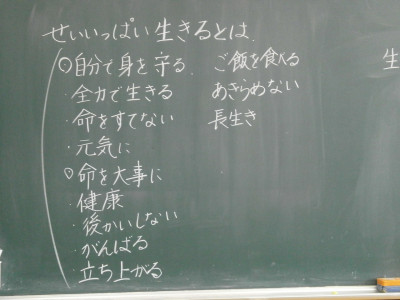 せいいっぱい生きるとは、
○自分で身を守る　ご飯を食べる
・全力で生きる　あきらめない
・命をすてない　長生き
・元気に
○命を大事に
・健康
・後かいしない
・がんばる
・立ち上がる
生